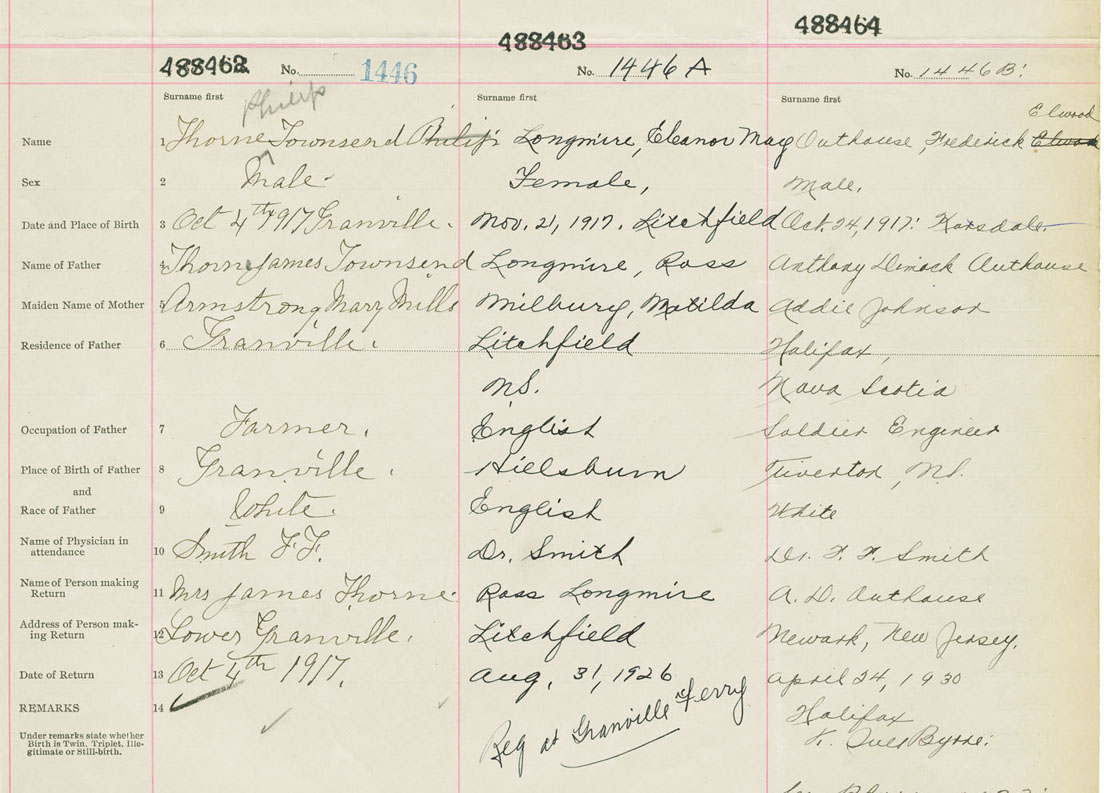 488462 488463 488464
No. 1446 No. 1446 A No. 1446 B.
Surname first Surname first Surname first
Philip Elwood
Name 1 Thorne Townsend Philip Longmire, Eleanor May Outhouse, Frederick
Sex 2 Male. Female, Male.
Date and Place of Birth 3 Oct 4th 1917 Granville. Nov. 21, 1917. Litchfield Oct. 24, 1917. Karsdale.
Name of Father 4 Thorne James Townsend Longmire, Ross Anthony Dimock Outhouse
Maiden Name of Mother 5 Armstrong Mary Mills Milbury, Matilda Addie Johnson
Residence of Father 6 Granville. Litchfield Halifax,
N.S. Nova Scotia
Occupation of Father 7 Farmer. English Soldier Engineer
Place of Birth of Father 8 Granville. Hillsburn Tiverton, N.S.
and
Race of Father 9 White. English White
Name of Physician in
attendance 10 Smith F.F. Dr. Smith Dr. F. F. Smith
Name of Person making
Return 11 Mrs James Thorne. Ross Longmire A. D. Outhouse
Address of Person mak-
ing Return 12 Lower Granville. Litchfield Newark, New Jersey.
Date of Return 13 Oct 4th 1917. Aug, 31, 1926 April 24, 1930
REMARKS 14 Reg at Granville Ferry Halifax
Under remarks state whether
Birth is Twin, Triplet, Ille-
gitimate or Still-birth.
Byrne.